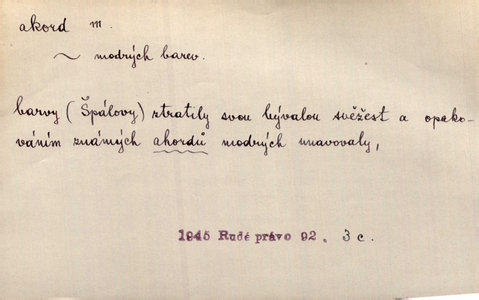 akord m.
~ modrých barev.
barvy (Špálovy) ztratily svou bývalou svěžest a opako-
váním známých akordů modrých unavovaly,
1945 Rudé právo 92, 3 c.